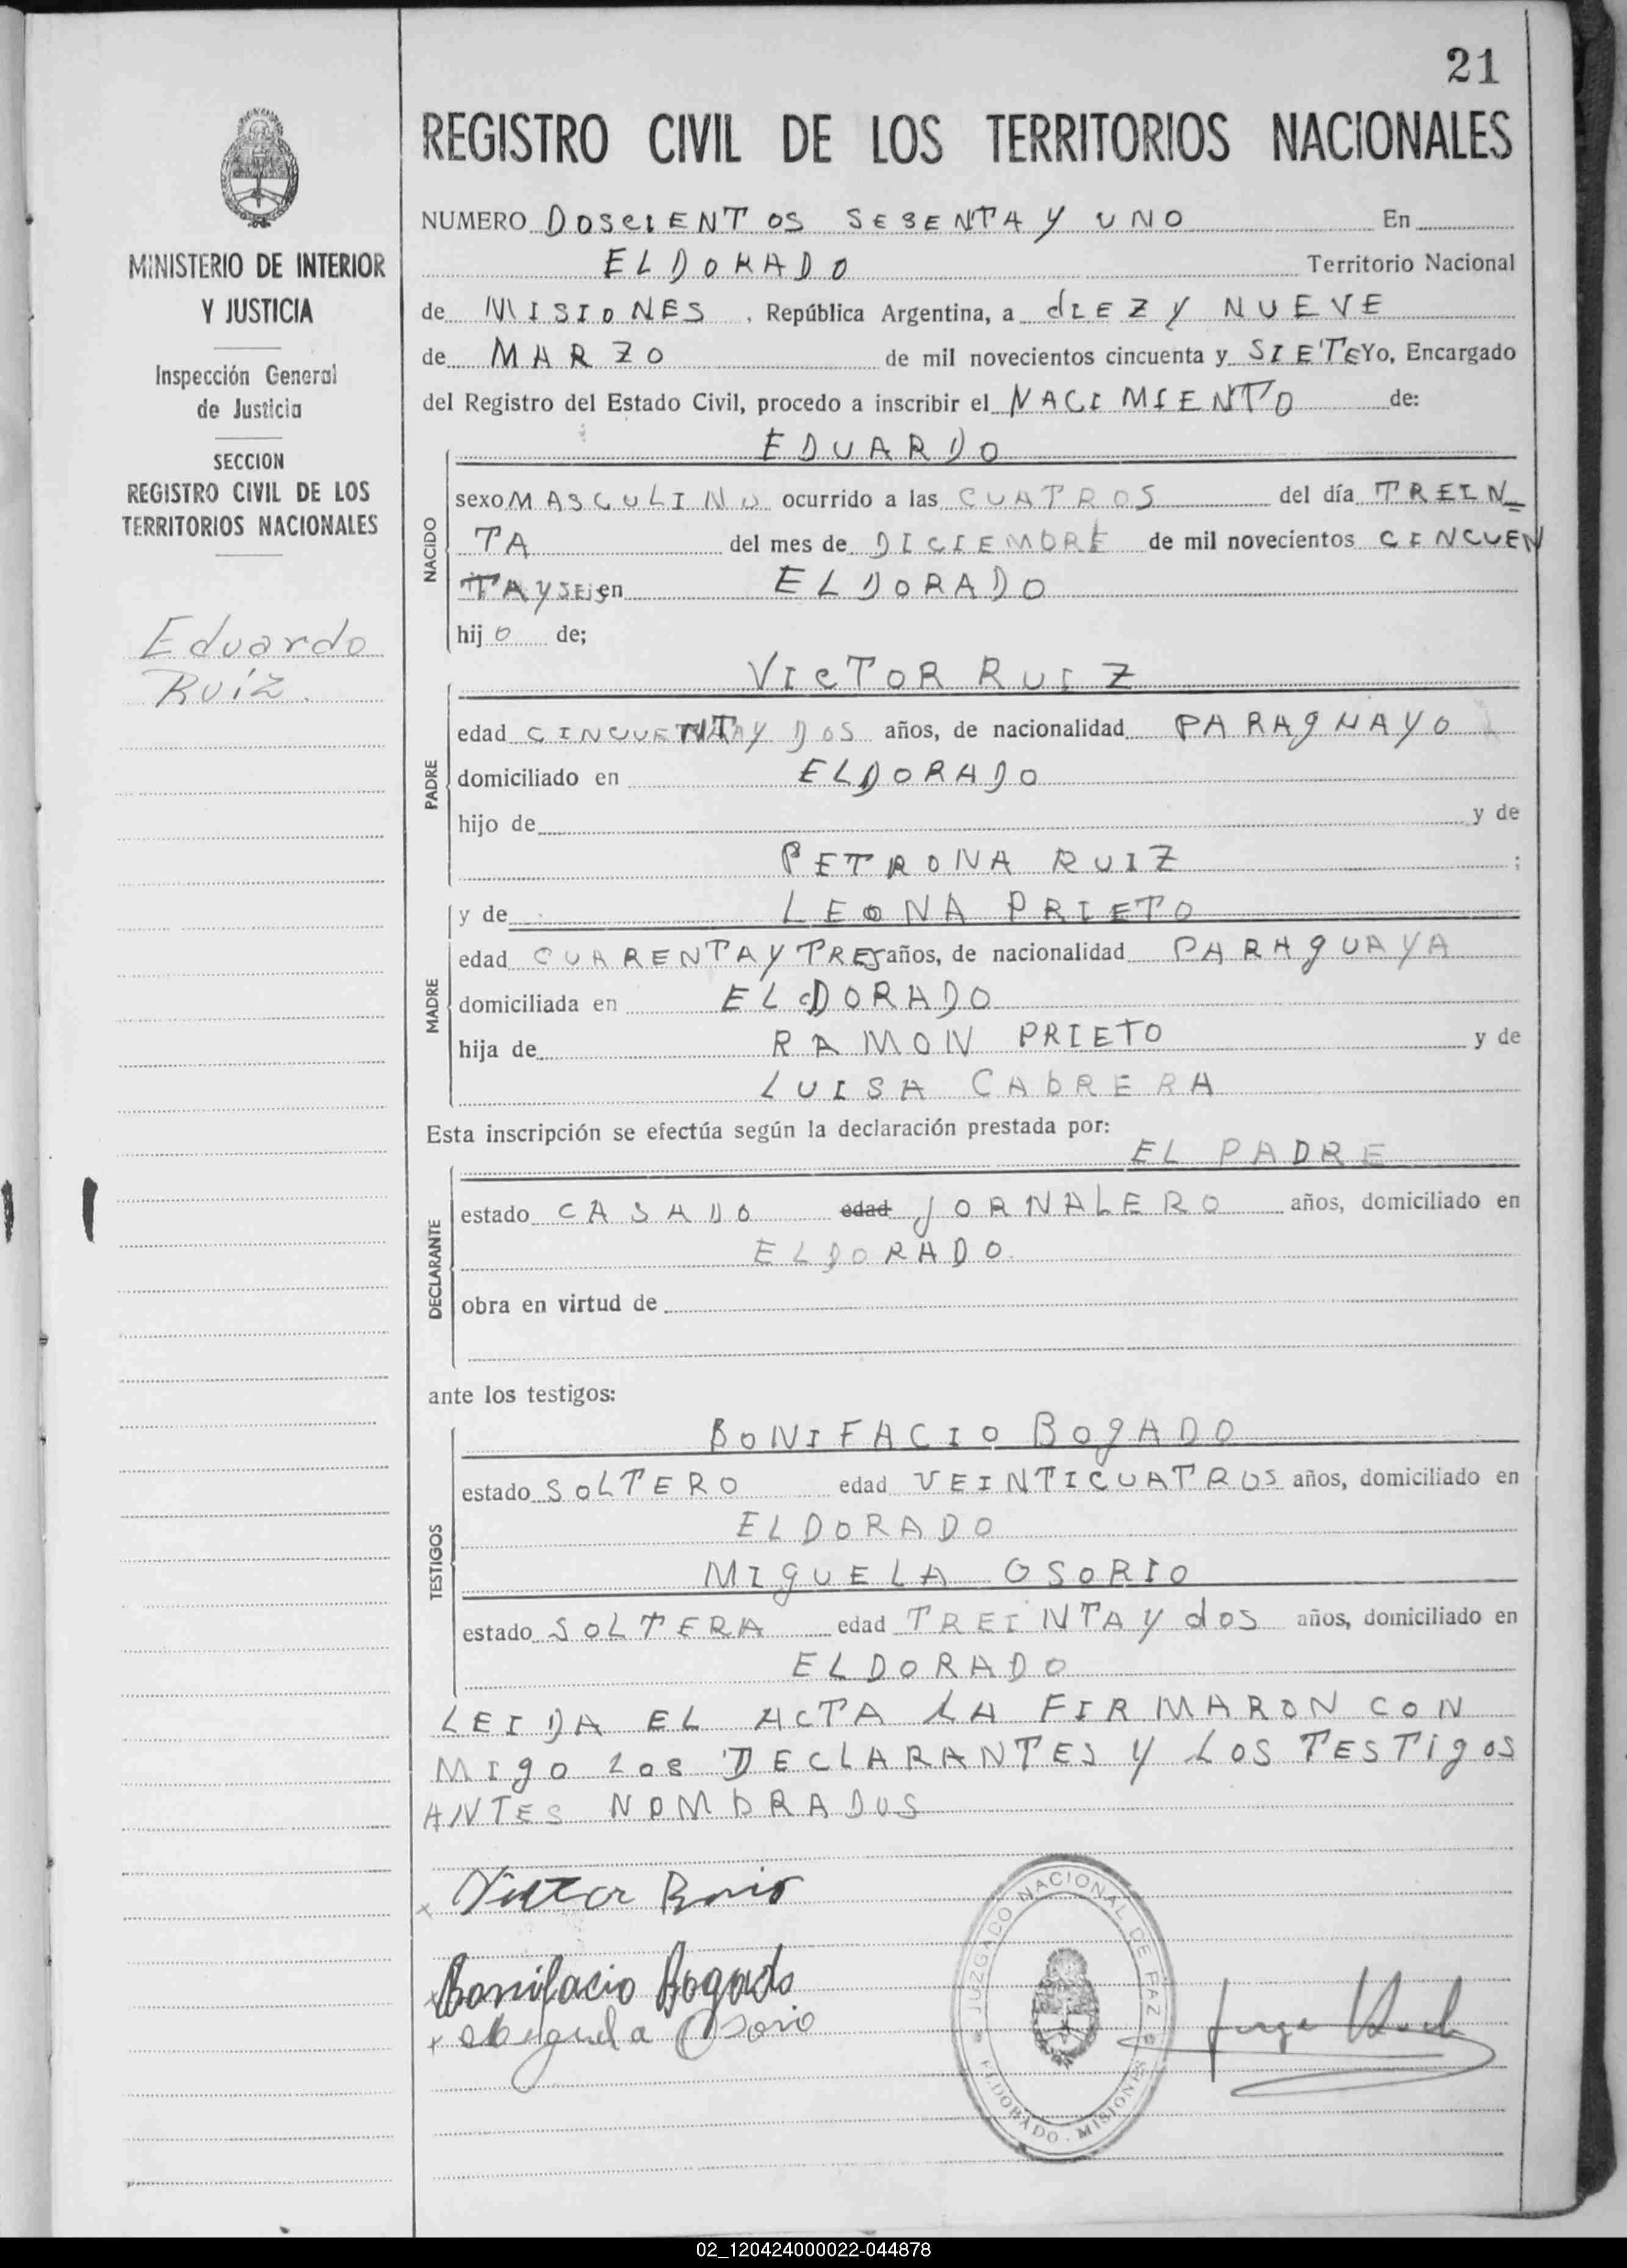 21
REGISTRO CIVIL DE LOS TERRITORIOS NACIONALES
MINISTERIO DE INTERIOR
Y JUSTICIA
Inspección General
de Justicia
SECCION
REGISTRO CIVIL DE LOS
TERRITORIOS NACIONALES
Eduardo
Ruíz.
NUMERO DOSCIENTOS SESENTA Y UNO En
ELDORADO Territorio Nacional
de MISIONES, República Argentina, a dIEZ Y NUEVE
de MARZO de mil novecientos cincuenta y SIETE Yo, Encargado
del Registro del Estado Civil, procedo a inscribir el NACIMIENTO de:
NACIDO
EDUARDO
sexo MASCULINO ocurrido a las CUATROS del día TREIN=
TA del mes de DICIEMBRE de mil novecientos CINCUEN
TA Y SEIS en ELDORADO
hijo de;
PADRE
VICTOR RUIZ
edad CINCUENTA Y DOS años, de nacionalidad PARAGUAYO
domiciliado en ELDORADO
hijo de y de
PETRONA RUIZ ;
MADRE
y de LEONA PRIETO
edad CUARENTA Y TRES años, de nacionalidad PARAGUAYA
domiciliada en ELDORADO
hija de RAMON PRIETO y de
LUISA CABRERA
Esta inscripción se efectúa según la declaración prestada por:
DECLARANTE
EL PADRE
estado CASADO edad JORNALERO años, domiciliado en
ELDORADO.
obra en virtud de
ante los testigos:
TESTIGOS
BONIFACIO BOGADO
estado SOLTERO edad VEINTICUATROS años, domiciliado en
ELDORADO
MIGUELA OSORIO
estado SOLTERA edad TREINTA Y dOS años, domiciliado en
ELDORADO
LEIDA EL ACTA LA FIRMARON CON
MIGO LOS DECLARANTES Y LOS TESTIGOS
ANTES NOMBRADOS
x Victor Ruis
x Bonifacio Bogado
x Miguela Osorio
JUZGADO NACIONAL DE PAZ
ELDORADO - MISIONES
Jorge
02_120424000022-044878